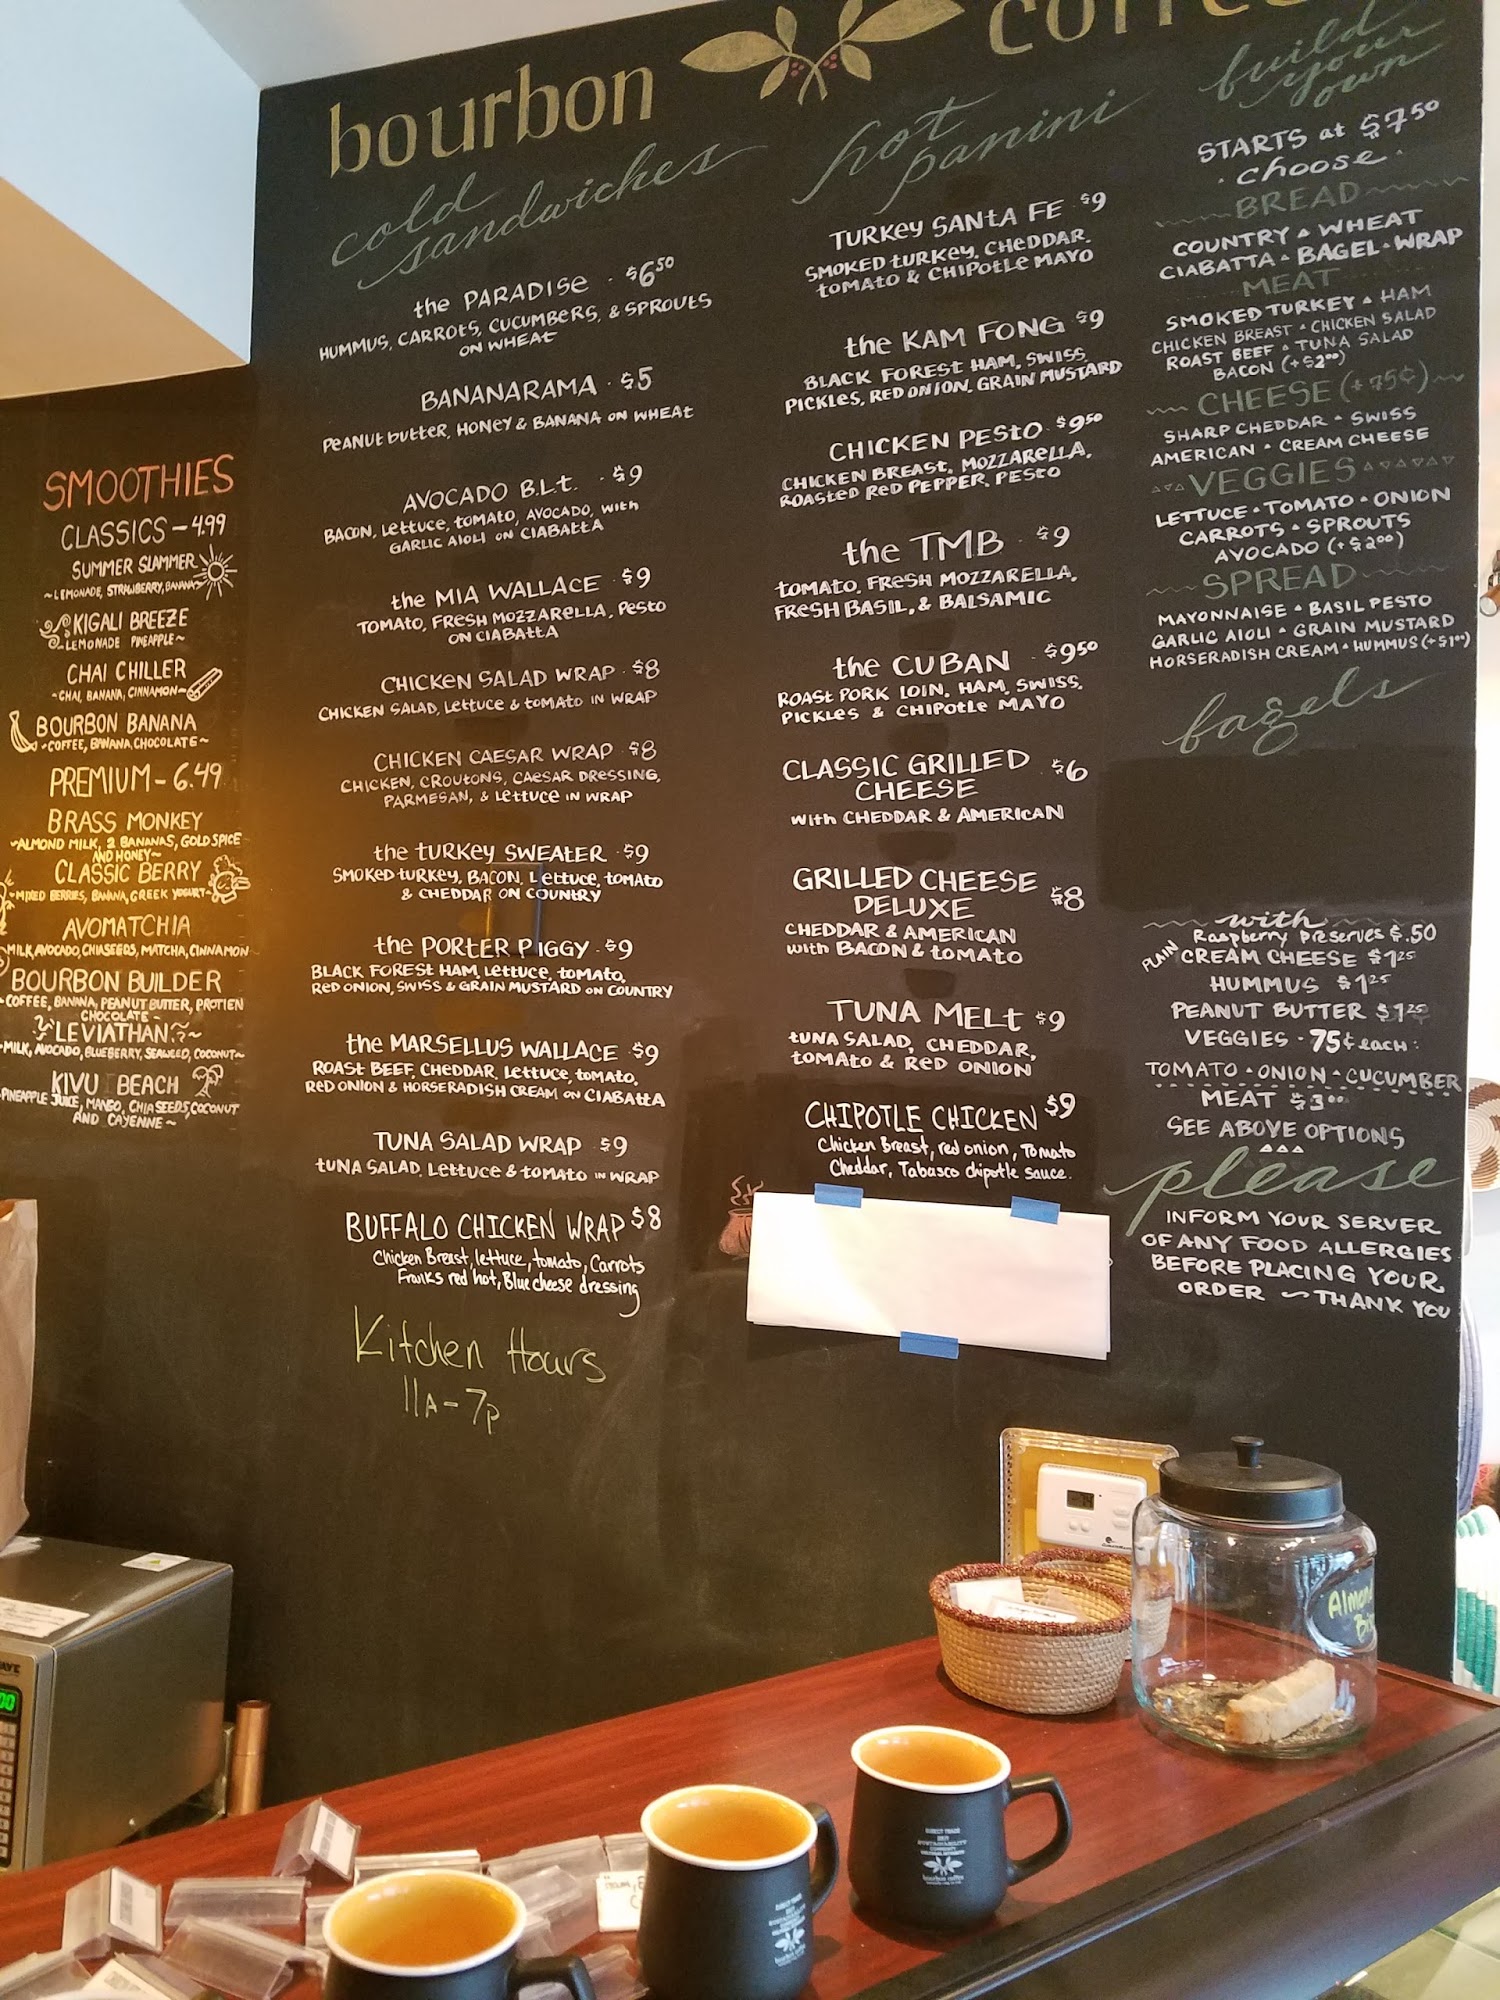 bourbon
SMOOTHIES
CLASSICS - 4.99
SUMMER SLAMMER
~LEMONADE, STRAWBERRY, BANANA~
KIGALI BREEZE
~LEMONADE PINEAPPLE~
CHAI CHILLER
~CHAI, BANANA, CINNAMON~
BOURBON BANANA
~COFFEE, BANANA, CHOCOLATE~
PREMIUM - 6.49
BRASS MONKEY
~ALMOND MILK, 2 BANANAS, GOLD SPICE
AND HONEY~
CLASSIC BERRY
~MIXED BERRIES, BANANA, GREEK YOGURT~
AVOMATCHIA
~MILK, AVOCADO, CHIASEEDS, MATCHA, CINNAMON~
BOURBON BUILDER
~COFFEE, BANANA, PEANUT BUTTER, PROTIEN
CHOCOLATE~
LEVIATHAN
~MILK, AVOCADO, BLUEBERRY, SEAWEED, COCONUT~
KIVU BEACH
~PINEAPPLE JUICE, MANGO, CHIA SEEDS, COCONUT
AND CAYENNE~
cold
sandwiches
the PARADISE · $6⁵⁰
HUMMUS, CARROTS, CUCUMBERS, & SPROUTS
ON WHEAT
BANANARAMA · $5
PEANUT BUTTER, HONEY & BANANA ON WHEAT
AVOCADO B.L.T. · $9
BACON, LETTUCE, TOMATO, AVOCADO, WITH
GARLIC AIOLI ON CIABATTA
the MIA WALLACE · $9
TOMATO, FRESH MOZZARELLA, PESTO
ON CIABATTA
CHICKEN SALAD WRAP · $8
CHICKEN SALAD, LETTUCE & TOMATO IN WRAP
CHICKEN CAESAR WRAP · $8
CHICKEN, CROUTONS, CAESAR DRESSING,
PARMESAN, & LETTUCE IN WRAP
the TURKEY SWEATER · $9
SMOKED TURKEY, BACON, LETTUCE, TOMATO
& CHEDDAR ON COUNTRY
the PORTER PIGGY · $9
BLACK FOREST HAM, LETTUCE, TOMATO,
RED ONION, SWISS & GRAIN MUSTARD ON COUNTRY
the MARSELLUS WALLACE · $9
ROAST BEEF, CHEDDAR, LETTUCE, TOMATO,
RED ONION & HORSERADISH CREAM ON CIABATTA
TUNA SALAD WRAP · $9
TUNA SALAD, LETTUCE & TOMATO IN WRAP
BUFFALO CHICKEN WRAP $8
Chicken Breast, lettuce, tomato, Carrots
Franks red hot, Blue cheese dressing
Kitchen Hours
11A - 7p
hot
panini
TURKEY SANTA FE · $9
SMOKED TURKEY, CHEDDAR,
TOMATO & CHIPOTLE MAYO
the KAM FONG · $9
BLACK FOREST HAM, SWISS,
PICKLES, RED ONION, GRAIN MUSTARD
CHICKEN PESTO · $9⁵⁰
CHICKEN BREAST, MOZZARELLA,
ROASTED RED PEPPER, PESTO
the TMB · $9
TOMATO, FRESH MOZZARELLA,
FRESH BASIL, & BALSAMIC
the CUBAN · $9⁵⁰
ROAST PORK LOIN, HAM, SWISS,
PICKLES & CHIPOTLE MAYO
CLASSIC GRILLED
CHEESE · $6
WITH CHEDDAR & AMERICAN
GRILLED CHEESE
DELUXE $8
CHEDDAR & AMERICAN
WITH BACON & TOMATO
TUNA MELT · $9
TUNA SALAD, CHEDDAR,
TOMATO & RED ONION
CHIPOTLE CHICKEN $9
Chicken Breast, red onion, Tomato
Cheddar, Tabasco chipotle sauce.
build
your
own
STARTS at $7⁵⁰
· choose ·
BREAD
COUNTRY ▵ WHEAT
CIABATTA ▵ BAGEL ▵ WRAP
MEAT
SMOKED TURKEY ▵ HAM
CHICKEN BREAST ▵ CHICKEN SALAD
ROAST BEEF ▵ TUNA SALAD
BACON (+$2⁰⁰)
CHEESE (+75¢)
SHARP CHEDDAR ▵ SWISS
AMERICAN ▵ CREAM CHEESE
VEGGIES
LETTUCE ▵ TOMATO ▵ ONION
CARROTS ▵ SPROUTS
AVOCADO (+$2⁰⁰)
SPREAD
MAYONNAISE ▵ BASIL PESTO
GARLIC AIOLI ▵ GRAIN MUSTARD
HORSERADISH CREAM ▵ HUMMUS (+$1⁰⁰)
bagels
with
Raspberry Preserves $.50
PLAIN CREAM CHEESE $1²⁵
HUMMUS $1²⁵
PEANUT BUTTER $1²⁵
VEGGIES · 75¢ each:
TOMATO ▵ ONION ▵ CUCUMBER
MEAT $3⁰⁰
SEE ABOVE OPTIONS
please
INFORM YOUR SERVER
OF ANY FOOD ALLERGIES
BEFORE PLACING YOUR
ORDER ~ THANK YOU
bourbon coffee
bourbon coffee